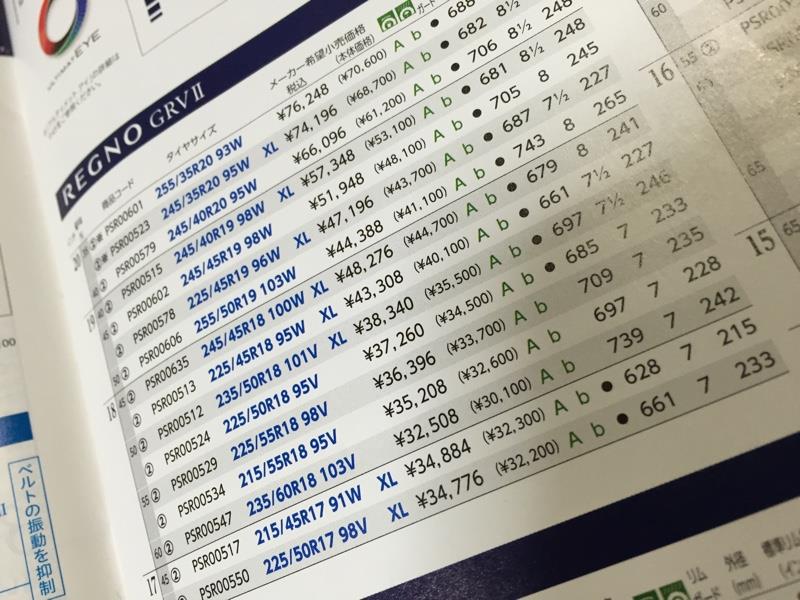 ULTIMAT EYE
REGNO GRVⅡ
商品コード タイヤサイズ メーカー希望小売価格
税込 (本体価格) ガード
20 ② PSR00601 255/35R20 93W ¥76,248 (¥70,600) A b ● 688
② PSR00523 245/35R20 95W XL ¥74,196 (¥68,700) A b ● 682 8½ 248
40 ② PSR00579 245/40R20 95W ¥66,096 (¥61,200) A b ● 706 8½ 248
19 40 ② PSR00515 245/40R19 98W XL ¥57,348 (¥53,100) A b ● 681 8½ 248
45 ② PSR00602 245/45R19 98W ¥51,948 (¥48,100) A b ● 705 8 245
② PSR00578 225/45R19 96W XL ¥47,196 (¥43,700) A b ● 687 7½ 227
50 ② PSR00606 255/50R19 103W ¥44,388 (¥41,100) A b ● 743 8 265
18 45 ② PSR00635 245/45R18 100W XL ¥48,276 (¥44,700) A b ● 679 8 241
② PSR00513 225/45R18 95W XL ¥43,308 (¥40,100) A b ● 661 7½ 227
50 ② PSR00512 235/50R18 101V XL ¥38,340 (¥35,500) A b ● 697 7½ 246
② PSR00524 225/50R18 95V ¥37,260 (¥34,500) A b ● 685 7 233
55 ② PSR00529 225/55R18 98V ¥36,396 (¥33,700) A b 709 7 235
② PSR00534 215/55R18 95V ¥35,208 (¥32,600) A b 697 7 228
60 ② PSR00547 235/60R18 103V ¥32,508 (¥30,100) A b 739 7 242
17 45 ② PSR00517 215/45R17 91W XL ¥34,884 (¥32,300) A b ● 628 7 215
PSR00550 225/50R17 98V XL ¥34,776 (¥32,200) A b ● 661 7 233
60
16 55 ②
65
15 65
ベルトの振動を抑制
リム
ガード
外径
(mm)
標準リム